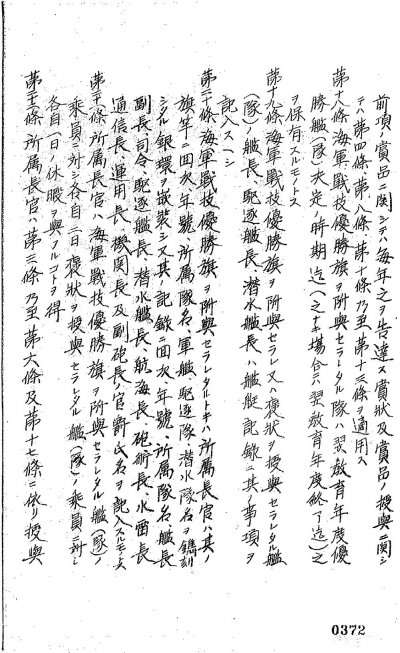 前項ノ賞品ニ関シテハ毎年之ヲ告達ス賞状及賞品ノ授與ニ関シ
テハ第四條第八條、第十條乃至第十三條ヲ適用ス
第十八條 海軍戰技優勝旗ヲ附與セラレタル隊ハ翌敎育年度優
勝艦(隊)決定ノ時期迄(之ナキ場合ニハ翌敎育年度終了迄)之
ヲ保有スルモトス
第十九條 海軍戰技優勝旗ヲ附與セラレ又ハ褒状ヲ授與セラレタル艦
(隊)ノ艦長、駆逐艦長、潜水艦長ハ艦艇記録ニ其ノ事項ヲ
記入スヘシ
第二十條 海軍戰技優勝旗ヲ附與セラレタルトキハ所属長官ハ其ノ
旗竿ニ回次、年號、所属隊名、軍艦、駆逐隊、潜水隊名ヲ鐫刻
シタル銀環ヲ嵌装シ又其ノ記録ニ回次、年號、所属隊名、艦長
副長、司令、駆逐艦長、潜水艦長、航海長、砲術長、水雷長
通信長、運用長、機関長及副砲長ノ官爵氏名ヲ記入スルモトス
第二十一條 所属長官ハ海軍戰技優勝旗ヲ附與セラレタル艦(隊)ノ
乗員ニ対シ各自三日褒状ヲ授與セラレタル艦(隊)ノ乗員ニ対シ
各自一日ノ休暇ヲ與フルコトヲ得
第二十二條 所属長官ハ第三條乃至第六條及第十七條ニ依リ授與
0372